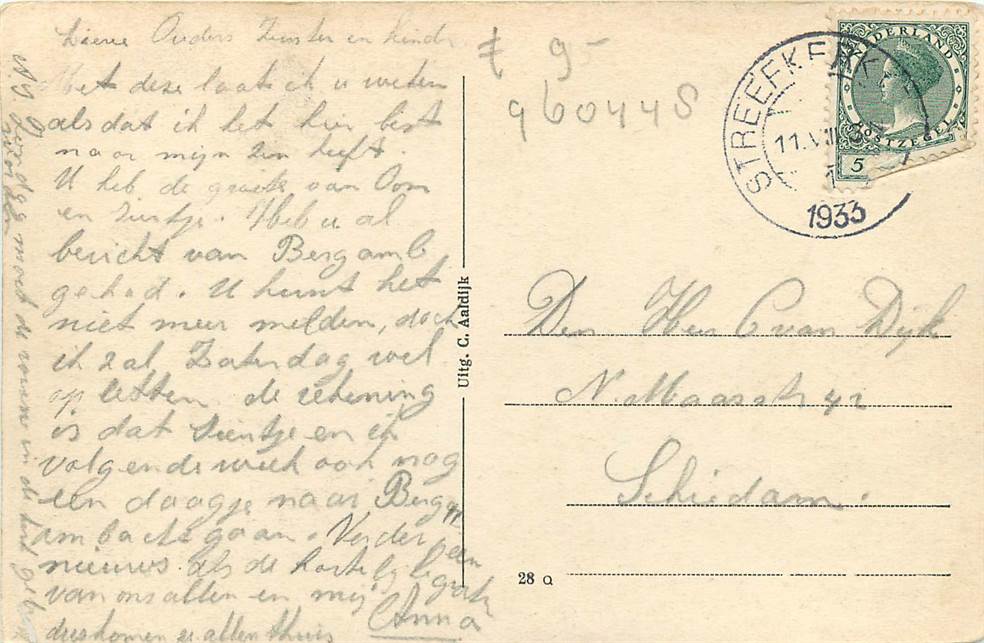 Lieve Ouders Zuster en Kinder
Met deze laat ik u weten
als dat ik het hier best
naar mijn zin heeft.
U heb de groete van Oom
en Sientje. Heb u al
bericht van Bergamb
gehad. U kunt het
niet meer melden, doch
ik zal Zaterdag wel
op letten. de rekening
is dat Sientje en ik
volgende week ook nog
een daagje naar Berg
ambacht gaan. Verder geen
nieuws. als de hartelijk groete
van ons allen en mij
Anna
moet de in de
£ 9-
960448
STREEFKERK
11.VIII
1933
NEDERLAND
POSTZEGEL
5
Uitg. C. Aaldijk
Den Heer C van Dijk
N. Maasstr 42
Schiedam.
28 Q